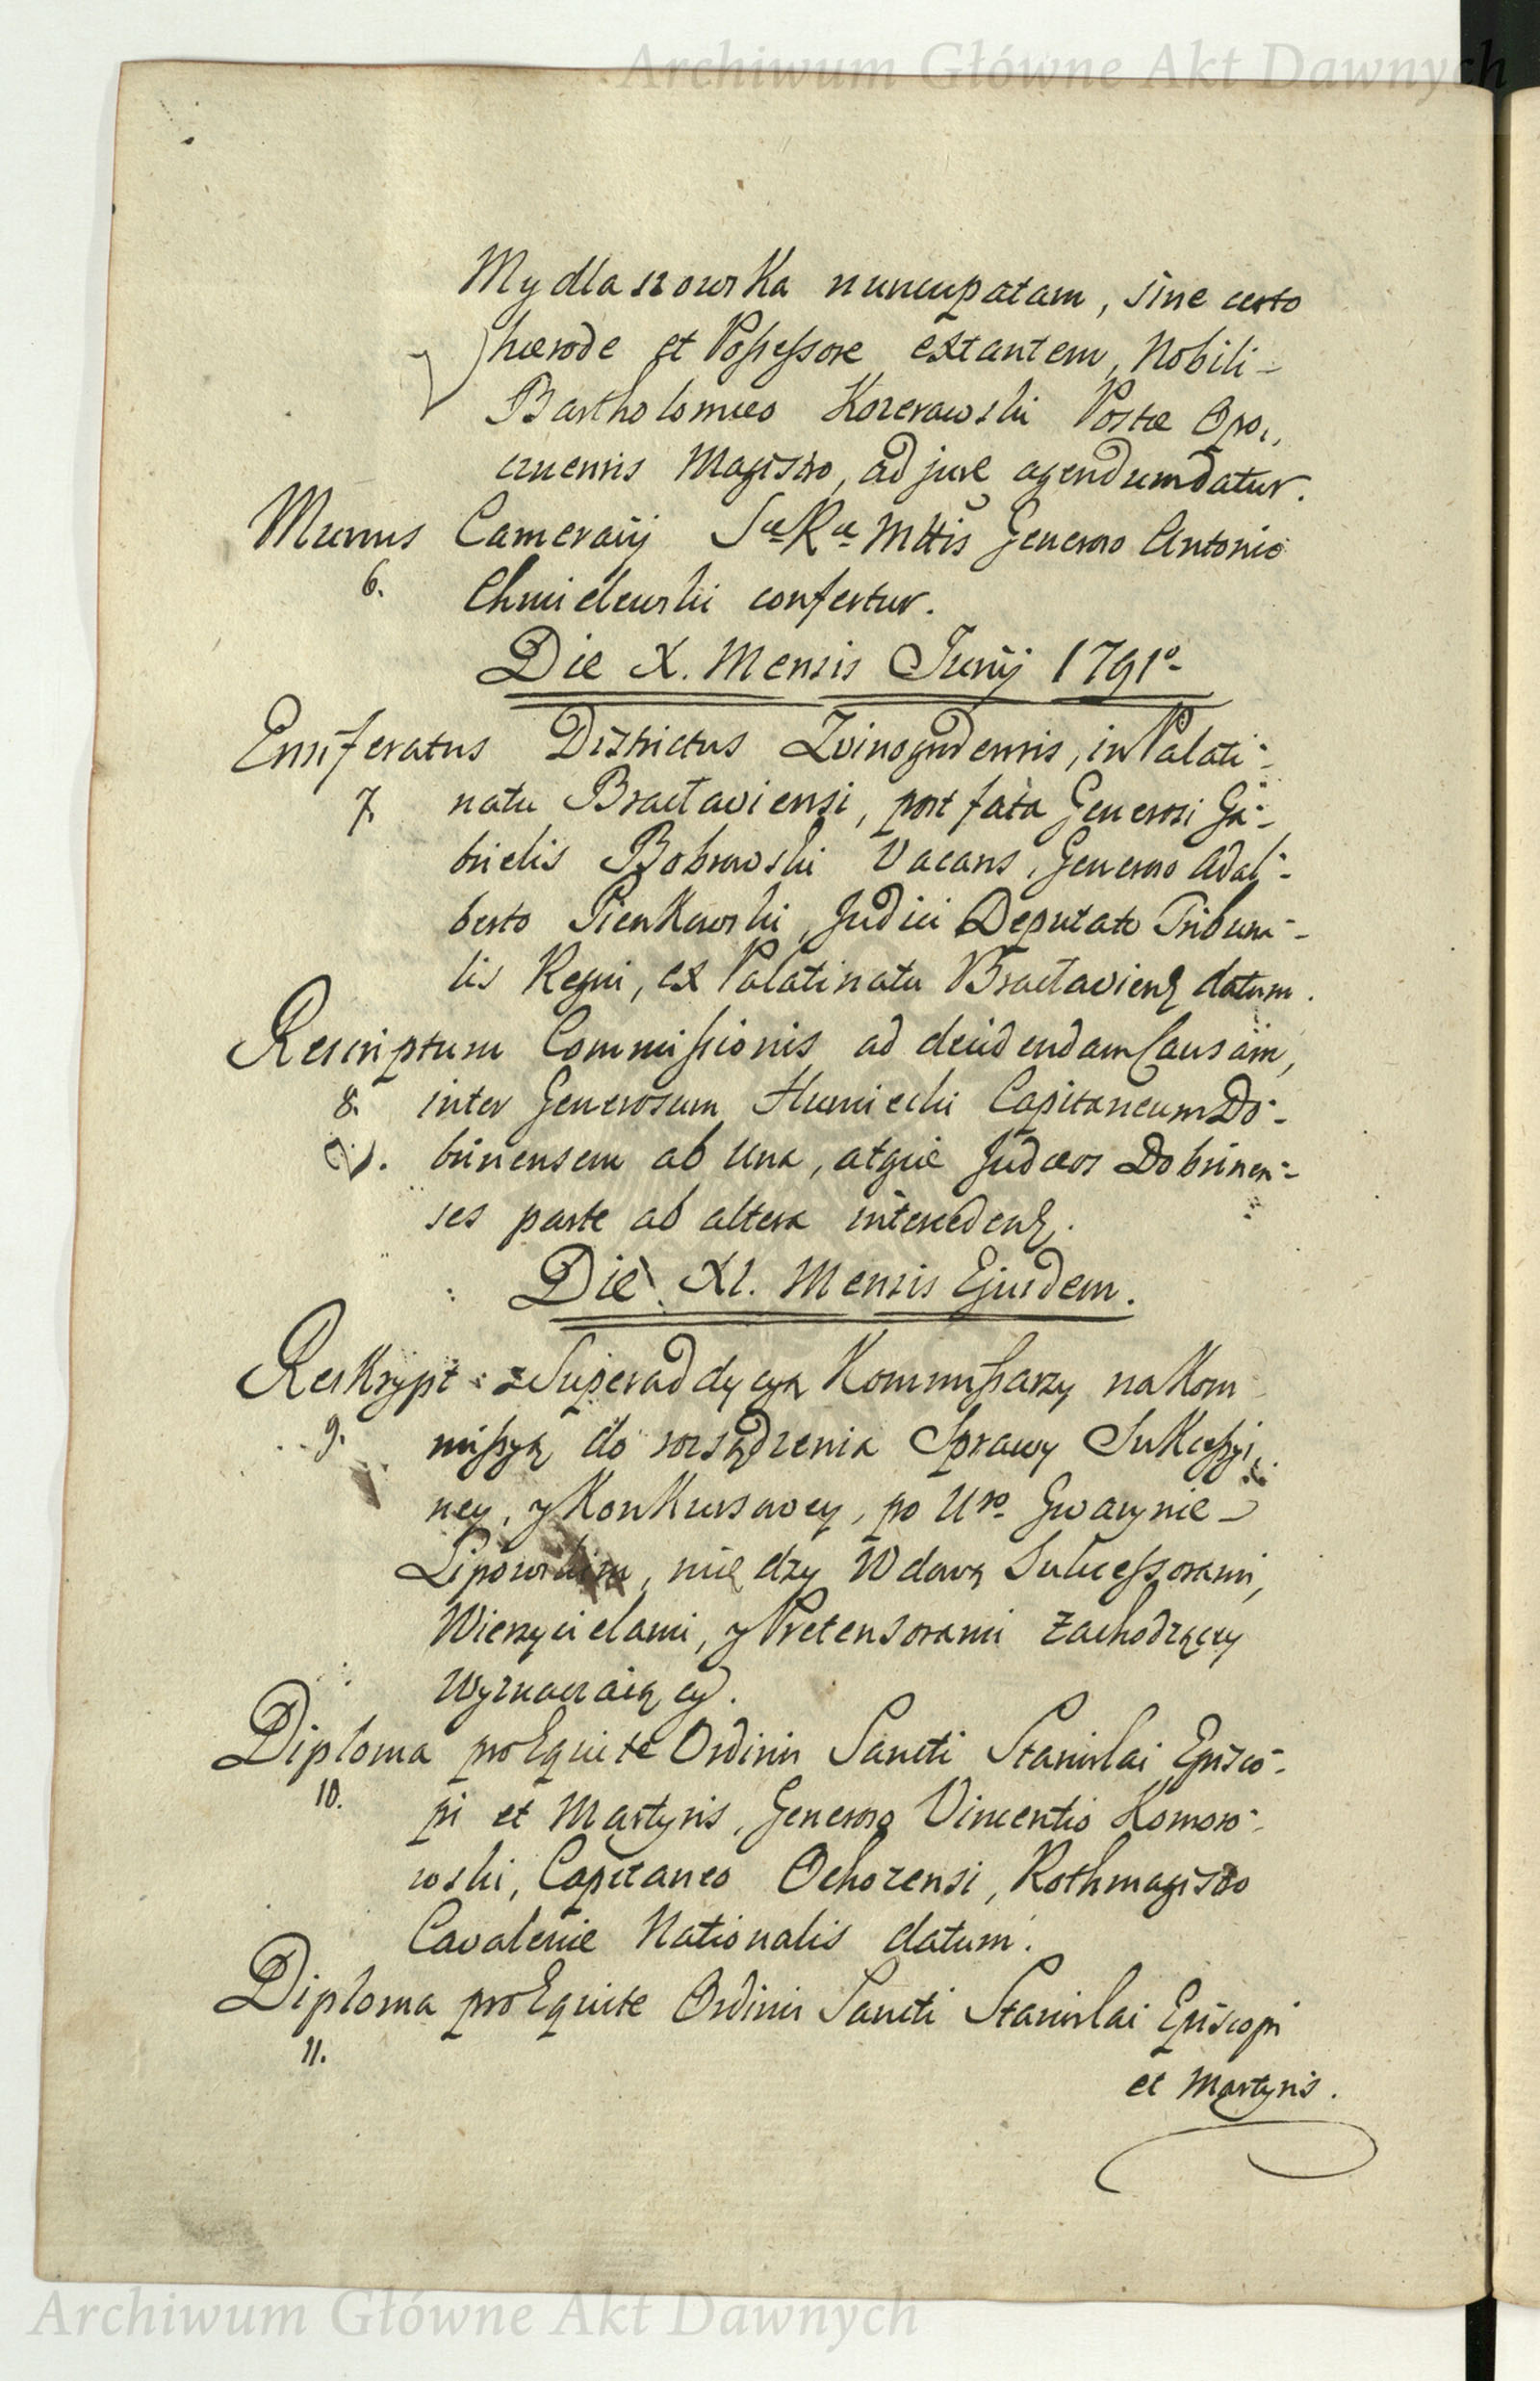 Archiwum Główne Akt Dawnych
Mydlaszowska nuncupatam, sine certo
hærode et Possessore extantem, Nobili-
Bartholomæo Kozerawski Postæ Opo-
cznensis Magistro, ad jure agendum datur.
Munus Camerarij Sæ Ræ Mttis Generoso Antonio
6. Chmielewski confertur.
Die X. Mensis Junij 1791o
Ensiferatus Districtus Zvinogrdensis, in Palati-
7. natu Bractaviensi, post fata Generosi Ga-
brielis Bobrowski Vacans, Generoso Adal-
berto Pienkowski, Judici Deputato Tribuna-
lis Regni, ex Palatinatu Bractaviens datum.
Rescriptum Commissionis ad decidendam Causam,
8. inter Generosum Humiecki Capitaneum Do-
brinensem ab una, atque Judæos Dobrinen-
ses parte ab altera interceden.
Die XI. Mensis Ejusdem.
Reskrypt z Superaddycyą Kommissarzy na Kom
9. missyą do rozsądzenia Sprawy Sukcessyi,
ney, y Konkursowey, po Uro Gwarynie
Lipowskim, między Wdową Sukcessorami,
Wierzycielami, y Pretensorami zachodzącey
wyznaczaiącey.
Diploma pro Equite Ordinis Sancti Stanislai Episco-
10. pi et Martyris, Generoso Vincentio Komoro-
wski, Capitaneo Ochozensi, Rothmagistro
Cavaleriæ Nationalis datum.
Diploma pro Equite Ordinis Sancti Stanislai Episcopi
11.
et Martyris.
Archiwum Główne Akt Dawnych